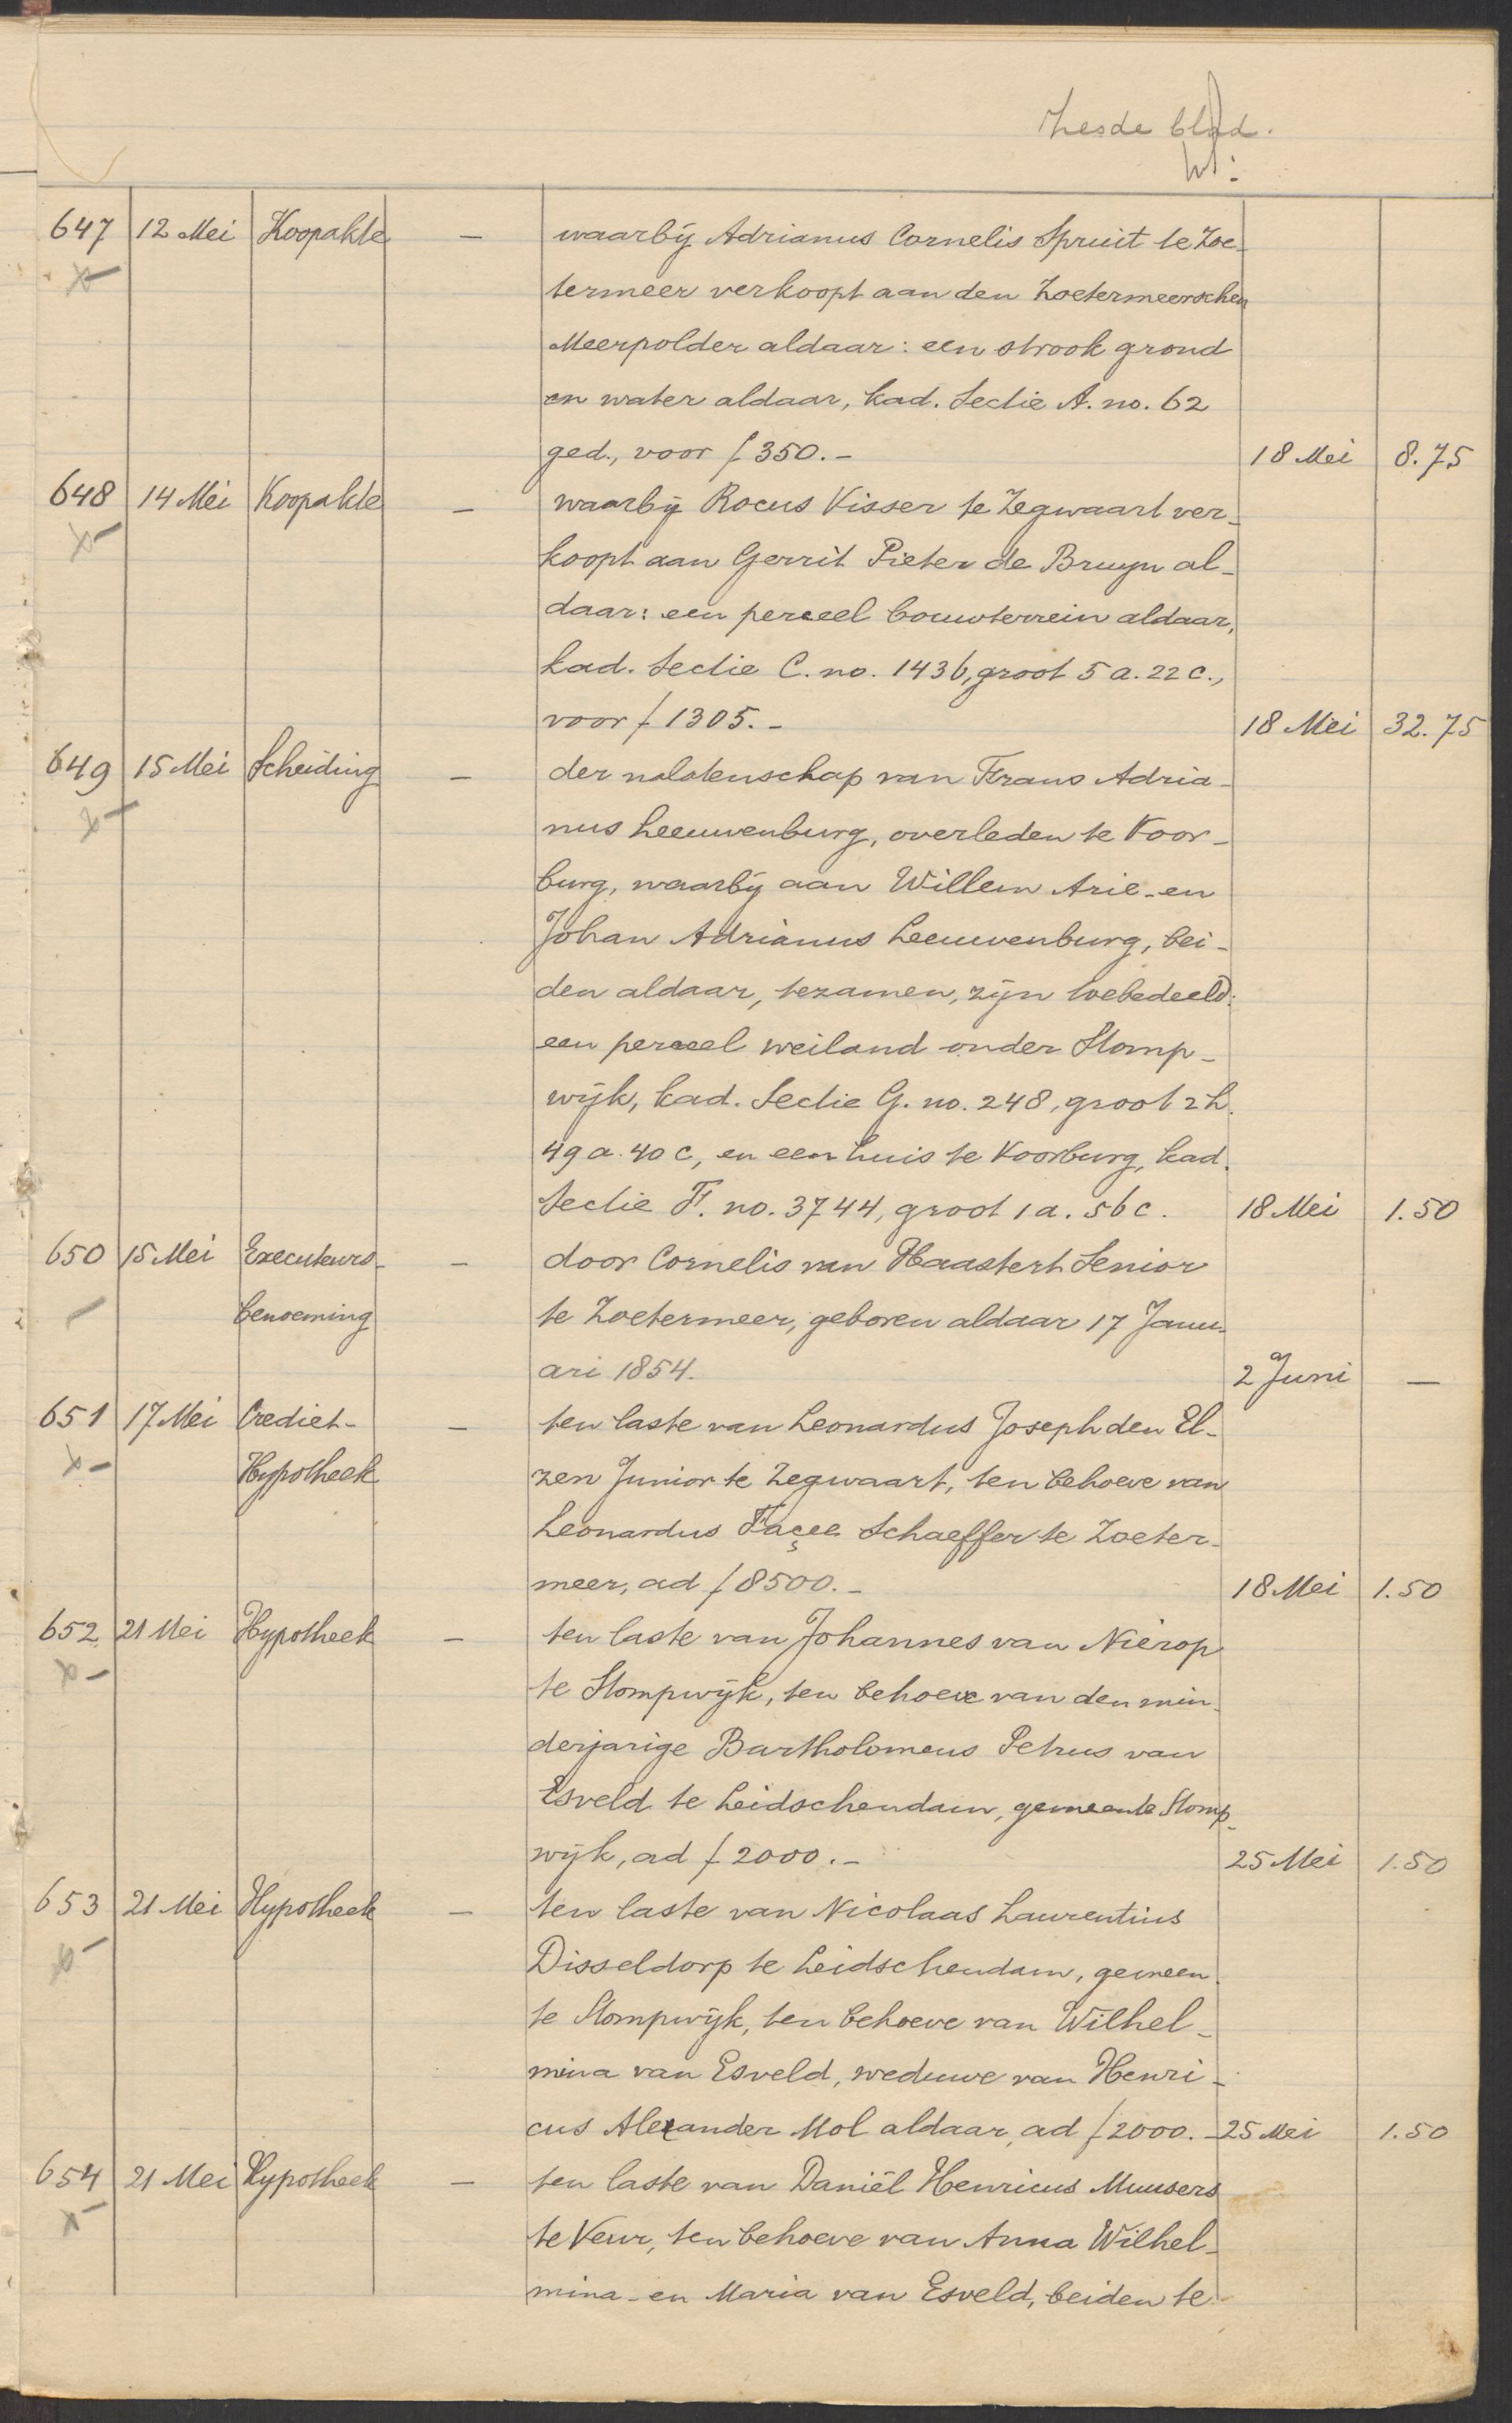 Zesde blad.
647 12 Mei Koopakte — waarbij Adrianus Cornelis Spruit te Zoe-
termeer verkoopt aan den Zoetermeerschen
Meerpolder aldaar: een strook grond
en water aldaar, kad. Sectie A. no. 62
ged., voor ƒ 350.- 18 Mei 8.75
648 14 Mei Koopakte — waarbij Rocus Visser te Zegwaart ver-
koopt aan Gerrit Pieter de Bruyn al-
daar: een perceel bouwterrein aldaar,
kad. Sectie C. no. 1436, groot 5 a. 22 c.,
voor ƒ 1305.- 18 Mei 32.75
649 15 Mei Scheiding — der nalatenschap van Frans Adria-
nus Leeuwenburg, overleden te Voor-
burg, waarbij aan Willem Arie- en
Johan Adrianus Leeuwenburg, bei-
den aldaar, tezamen, zijn toebedeeld:
een perceel weiland onder Stomp-
wijk, kad. Sectie G. no. 248, groot 2 h.
49 a. 40 c, en een huis te Voorburg, kad.
Sectie F. no. 3744, groot 1 a. 56 c. 18 Mei 1.50
650 15 Mei Executeurs- — door Cornelis van Haastert Senior
benoeming te Zoetermeer, geboren aldaar 17 Janu-
ari 1854. 2 Juni —
651 17 Mei Crediet- — ten laste van Leonardus Joseph den El-
Hypotheek zen Junior te Zegwaart, ten behoeve van
Leonardus Façee Schaeffer te Zoeter-
meer, ad ƒ 8500.- 18 Mei 1.50
652. 21 Mei Hypotheek — ten laste van Johannes van Nierop
te Stompwijk, ten behoeve van den min-
derjarige Bartholomeus Petrus van
Esveld te Leidschendam, gemeente Stomp-
wijk, ad ƒ 2000.- 25 Mei 1.50
653 21 Mei Hypotheek — ten laste van Nicolaas Laurentius
Disseldorp te Leidschendam, gemeen-
te Stompwijk, ten behoeve van Wilhel-
mina van Esveld, weduwe van Henri-
cus Alexander Mol aldaar, ad ƒ 2000.- 25 Mei 1.50
654 21 Mei Hypotheek — ten laste van Daniël Henricus Muusers
te Veur, ten behoeve van Anna Wilhel-
mina- en Maria van Esveld, beiden te